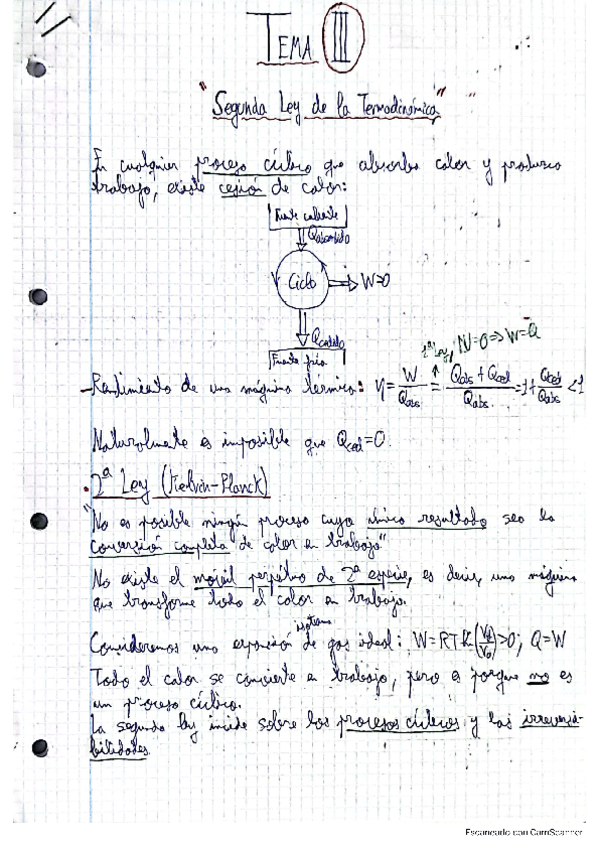 TEMA III
"Segunda Ley de la Termodinámica"
En cualquier proceso cíclico que absorba calor y produzca
trabajo, existe cesión de calor:
Fuente caliente
Qabsorbido
Ciclo
W>0
Qcedido
Fuente fría
1ª Ley, ΔU=0=>W=Q
-Rendimiento de una máquina térmica: η=W/Qabs = Qabs+Qced/Qabs =1+Qced/Qabs<1
Naturalmente es imposible que Qced=0.
·2ª Ley (Kelvin-Planck)
"No es posible ningún proceso cuyo único resultado sea la
conversión completa de calor en trabajo"
No existe el móvil perpetuo de 2ª especie, es decir, una máquina
que transforme todo el calor en trabajo.
isoterma
Consideremos una expansión de gas ideal: W=RT ln(Vf/V0)>0; Q=W
Todo el calor se convierte en trabajo, pero es porque no es
un proceso cíclico.
La segunda ley incide sobre los procesos cíclicos y las irreversi-
bilidades.
Escaneado con CamScanner